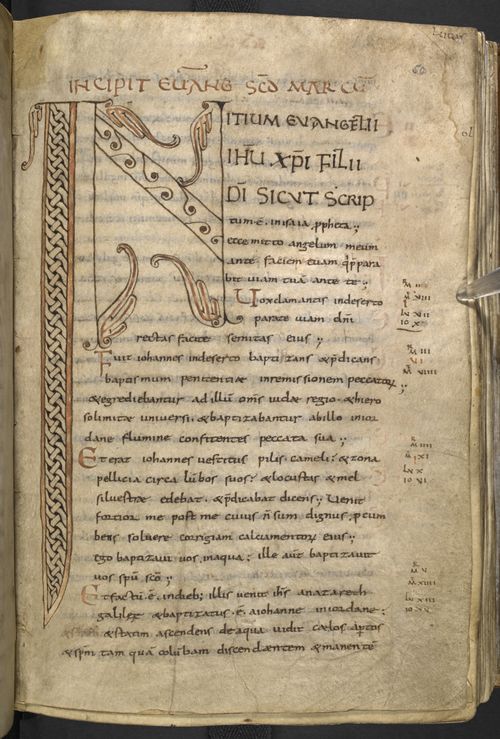 INCIPIT EUANG SCD MARCU
60
IN
ITIUM EVANGELII
IHU XPI FILII
DI SICUT SCRIP
tum ē. in isaia ppheta;
ecce mitto angelum meum
ante faciem tuam q̄ p̄para
bit uiam tuā ante te;
Uox clamantis in deserto
parate uiam dn̄i
rectas facite semitas eius;
Fuit iohannes in deserto baptizans & p̄dicans
baptismum penitentiae in remissionem peccatoꝝ;
& egrediebantur ad illū om̄s iudae regio. & hiero
solimitae universi. & baptizabantur ab illo in ior
dane flumine confitentes peccata sua;
Et erat iohannes vestitus pilis cameli. & zona
pellicia circa lūbos suos. & locustas & mel
silvestrae edebat. & p̄dicabat dicens; Uenit
fortior me post me cuius n̄ sum dignus, p̱cum
bens soluere corrigiam calciamentorꝝ eius;
ego baptizaui uos in aqua; ille aut̄ baptizauit
uos spū scō;
Et factū. ē. in dieb; illis uenit ihs̄ anazareth
galileae & baptizatus. ē. a iohanne in iordane;
& statim ascendens de aqua uidit caelos aꝑtos
& sp̄m tam quā colūbam discendaentem & manente